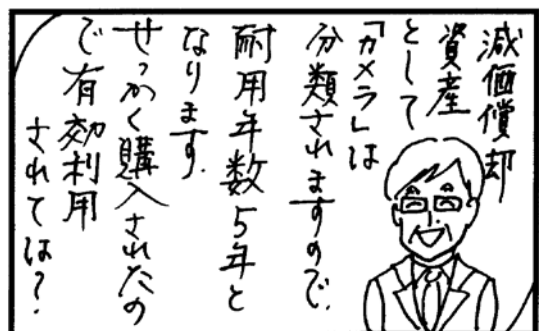 減価償却
資産
として
「カメラ」は
分類されますので、
耐用年数5年と
なります。
せっかく購入されたの
で有効利用
されては?